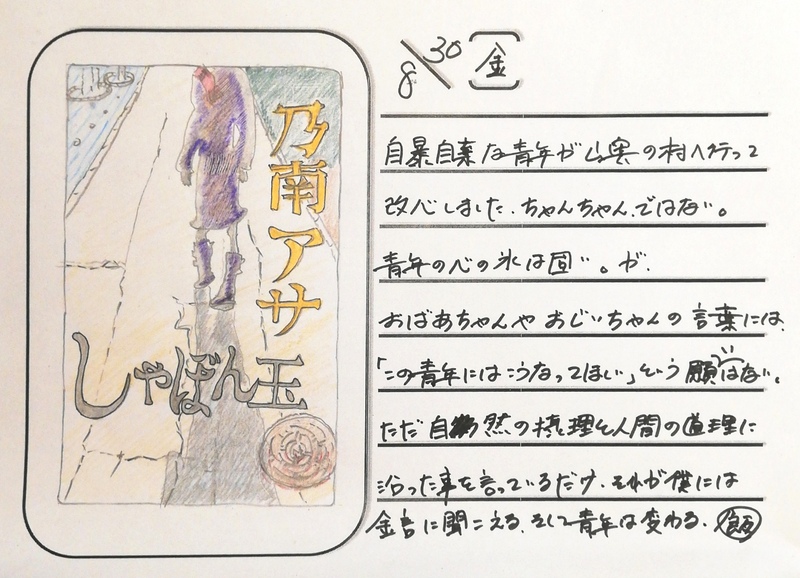 乃南アサ
しゃぼん玉
8/30 金
自暴自棄な青年が山奥の村へ行って
改心しました.ちゃんちゃん.ではない。
青年の心の氷は固い。が.
おばあちゃんや おじいちゃんの言葉には、
「この青年にはこうなってほしい」という願いはない。
ただ自然の摂理と人間の道理に
沿った事を言っているだけ.それが僕には
金言に聞こえる.そして青年は変わる. 飯